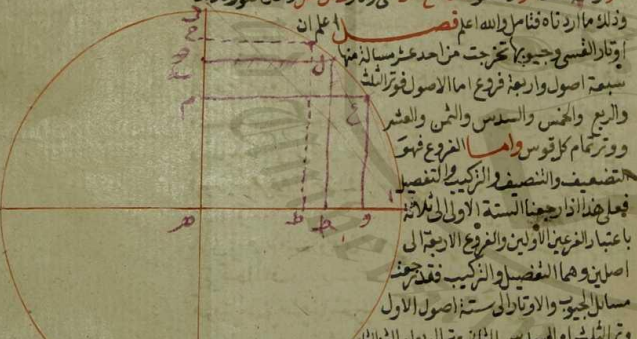 وذلك ما اردناه فتامل والله اعلم فصل اعلم ان
اوتار القسى وجيوبها تخرجت من احد عشر مسالة منها
سبعة اصول واربعة فروع اما الاصول فوتر الثلث
والربع والخمس والسدس والثمن والعشر
ووتر تمام كل قوس واما الفروع فهو
التضعيف والتنصيف والتركيب والتفصيل
فعلى هذا اذا رجعنا الستة الاولى الى ثلاثة
باعتبار الفرعين الأولين والفروع الاربعة الى
اصلين وهما التفصيل والتركيب فقد رجعت
مسائل الجيوب والاوتار الى ستة اصول الاول
ح
ل
م
ع
ه
ط
و